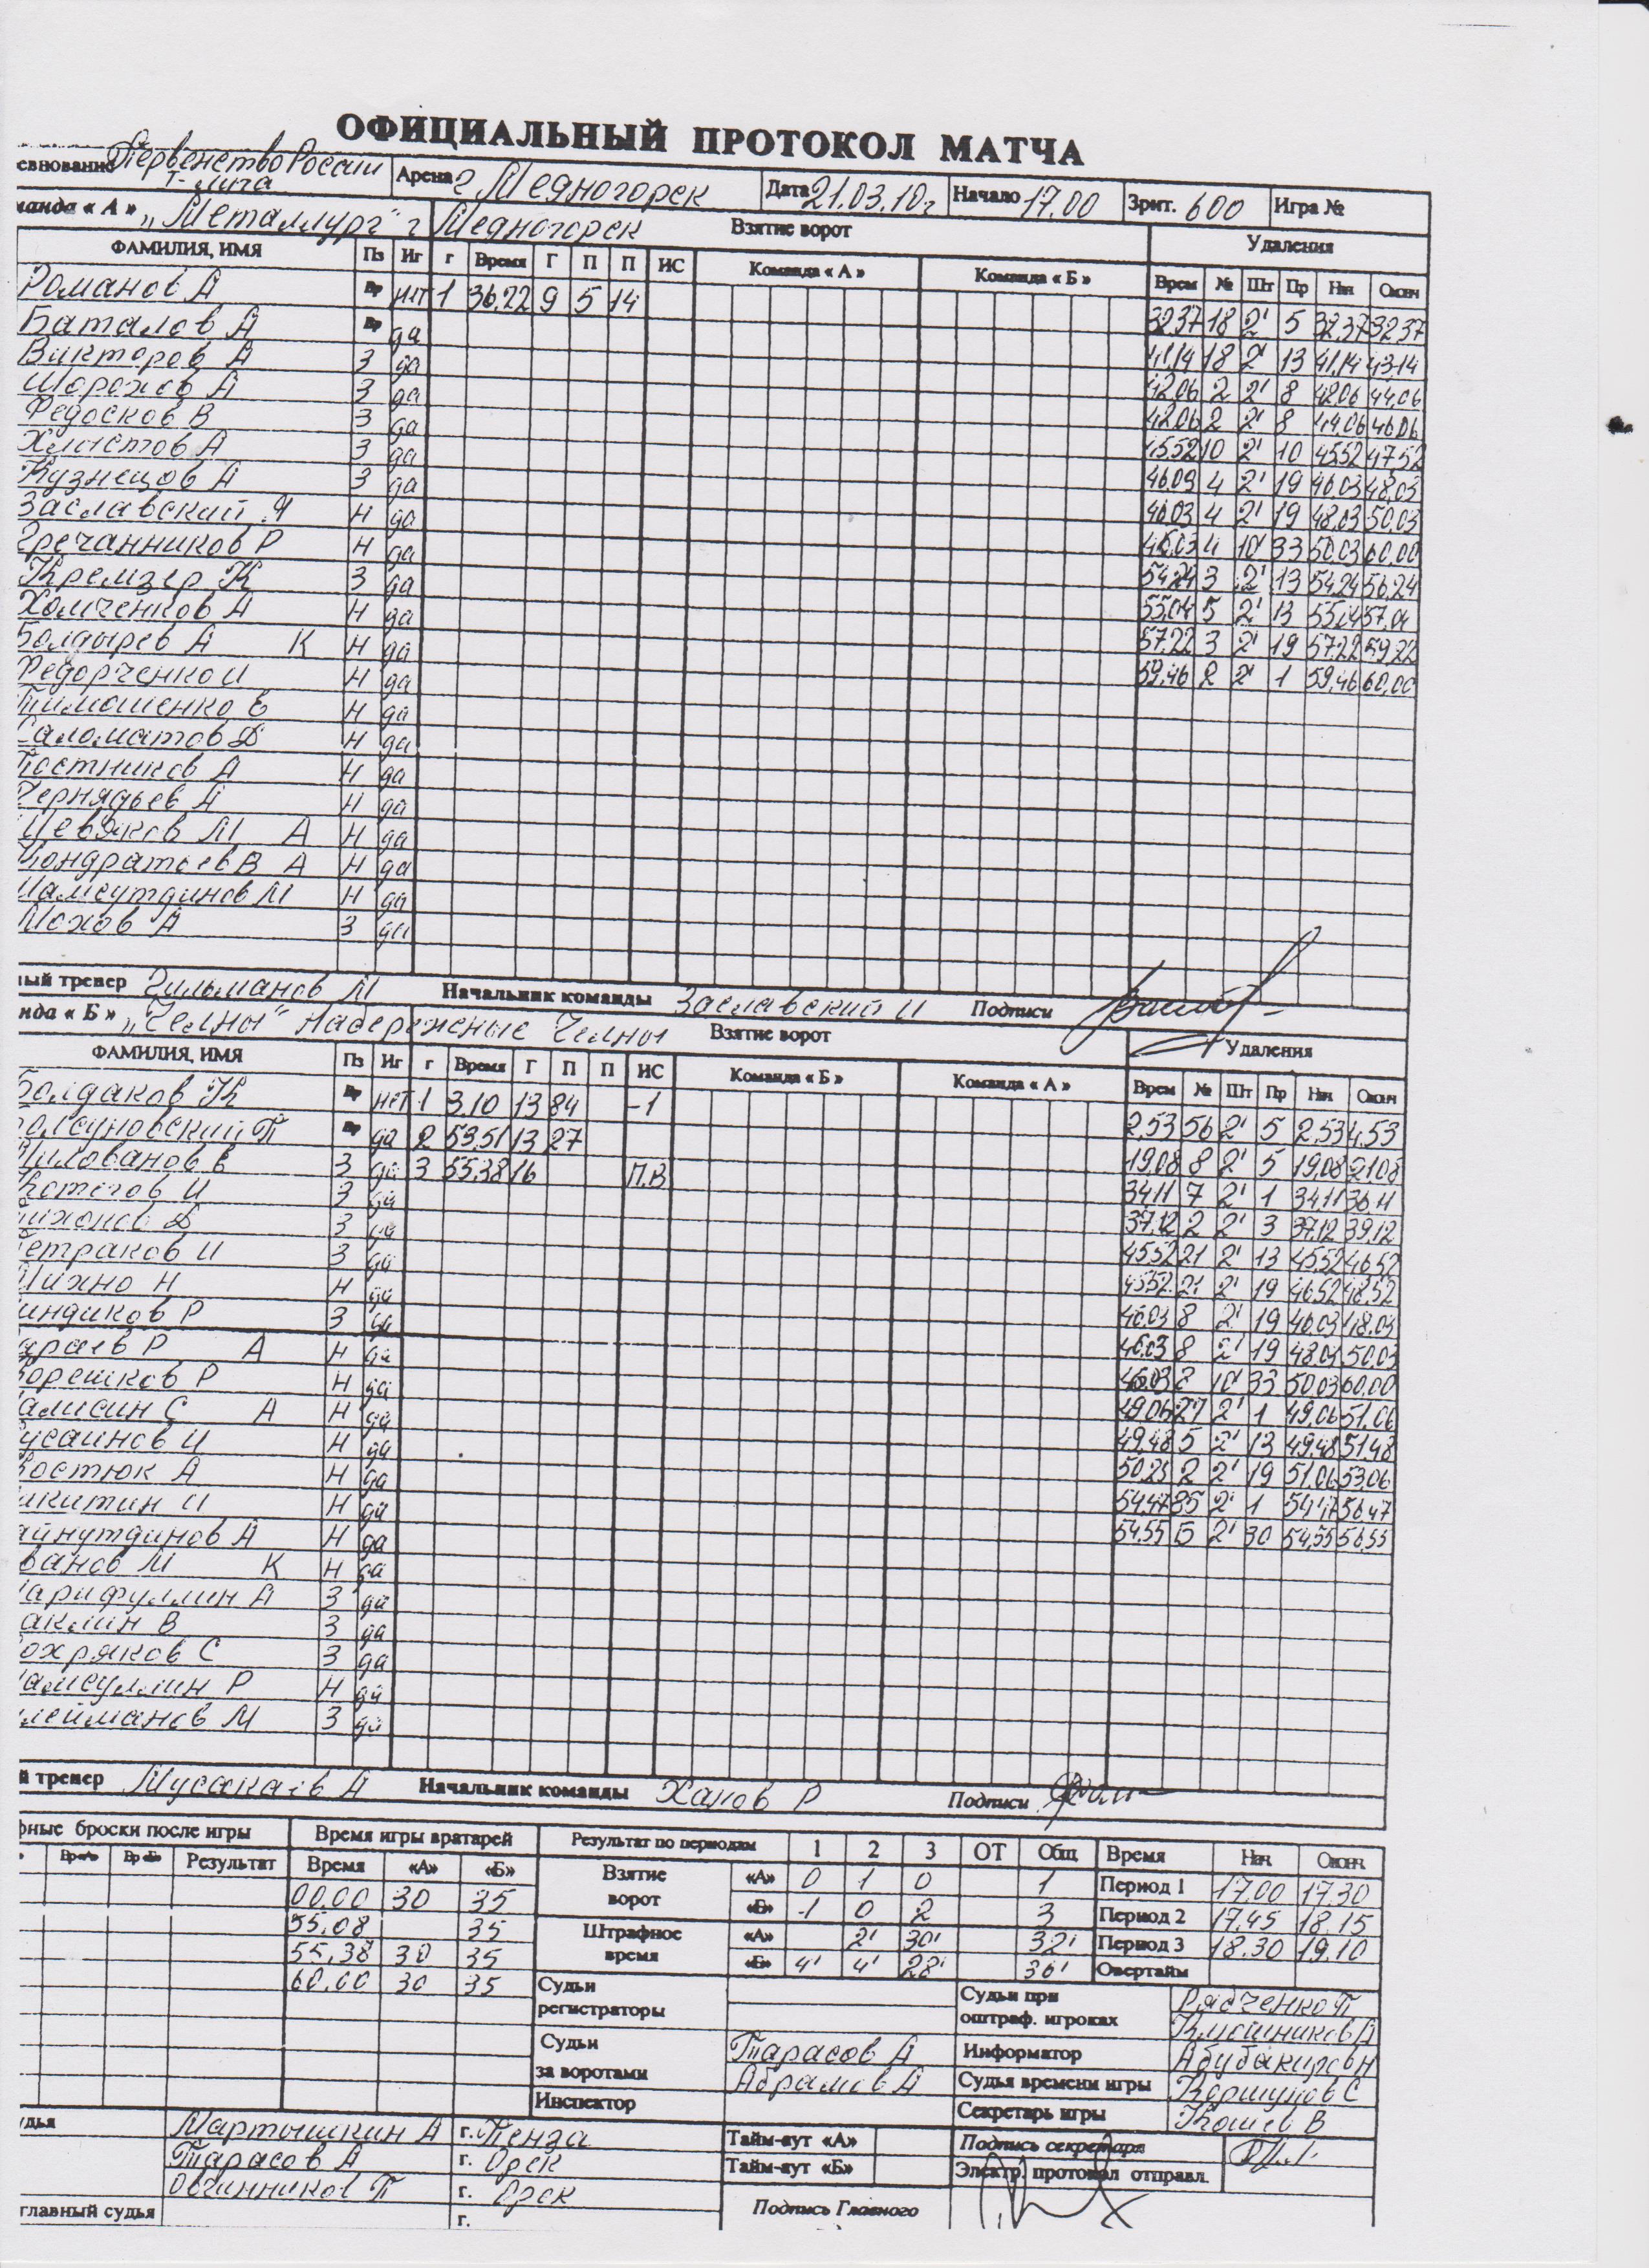 ОФИЦИАЛЬНЫЙ ПРОТОКОЛ МАТЧА
евнование Первенство России Арена г Медногорск Дата 21.03.10г Начало 17.00 Зрит. 600 Игра №
т-лига
манда « А » „Металлург" г Медногорск Взятие ворот Удаления
ФАМИЛИЯ, ИМЯ Пз Иг г Время Г П П ИС Команда « А » Команда « Б » Врем № Шт Пр Нач Оконч
Романов А Вр нет 1 36.22 9 5 14 32 37 18 2' 5 32.37 32 37
Баталов А Вр да 41.14 18 2' 13 41.14 43.14
Викторов А З да 42.06 2 2' 8 42.06 44.06
Шорохов А З да 42.06 2 2' 8 44.06 46.06
Федосков В З да 45.52 10 2' 10 45.52 47.52
Хлыстов А З да 46.03 4 2' 19 46.03 48.03
Кузнецов А З да 46.03 4 2' 19 48.03 50.03
Заславский Я Н да 46.03 4 10' 33 50.03 60.00
Гречанников Р Н да 54.24 3 2' 13 54.24 56.24
Кремзер К З да 55.04 5 2' 13 55.04 57.04
Холченков А Н да 57.22 3 2' 19 57.22 59.22
Болдырев А К Н да 59.46 2 2' 1 59.46 60.00
Федорченко И Н да
Тимошенко Е Н да
Саломатов Д Н да
Постников А Н да
Чернядьев А Н да
Шевяков М А Н да
Кондратьев В А Н да
Шамсутдинов М Н да
Мохов А З да
ный тренер Гильманов М Начальник команды Заславский И Подписи
нда « Б » „Челны" Набережные Челны Взятие ворот Удаления
ФАМИЛИЯ, ИМЯ Пз Иг г Время Г П П ИС Команда « Б » Команда « А » Врем № Шт Пр Нач Оконч
Болдаков К Вр нет 1 3.10 13 84 -1 2.53 56 2' 5 2.53 4.53
Волсуновский П Вр да 2 53.51 13 27 19.08 8 2' 5 19.08 21 08
Милованов В З да 3 55.38 16 П.В 34.11 7 2' 1 34.11 36.11
Котегов И З да 37.12 2 2' 3 37.12 39.12
ихонов Д З да 45.52 21 2' 13 45.52 46.52
Петраков И З да 45.52 21 2' 19 46.52 48.52
Михно Н Н да 46.03 8 2' 19 46.03 48.03
индиков Р З да 46.03 8 2' 19 48.03 50.03
араев Р А Н да 46.03 8 10' 33 50.03 60.00
орешков Р Н да 49.06 27 2' 1 49.06 51.06
алисин С А Н да 49.48 5 2' 13 49.48 51.48
усаинов И Н да 2 2' 19 51.06 53.06
Костюк А Н да 54.47 85 2' 1 54 47 56.47
икитин И Н да 54.55 2' 30 54.55 56.55
айнутдинов А Н да
ванов М К Н да
арифуллин А З да
аклин В З да
охряков С З да
амсуллин Р Н да
улейманов М З да
й тренер Мусакаев А Начальник команды Ханов Р Подписи
фные броски после игры Время игры вратарей Результат по периодам 1 2 3 ОТ Общ Время Нач. Оконч.
Вр«А» Вр «Б» Результат Время «А» «Б» Взятие ворот «А» 0 1 0 1 Период 1 17.00 17.30
00.00 30 35 «Б» -1 0 2 3 Период 2 17.45 18.15
55.08 35 Штрафное время «А» 2' 30' 32' Период 3 18.30 19.10
55.38 30 35 «Б» 4' 4' 28' 36' Овертайм
60.00 30 35 Судьи регистраторы Судьи при оштраф. игроках Рядченко П
Ключников А
Судьи за воротами Тарасов А Информатор Абубакиров Н
Абрамов А Судья времени игры Коршунов С
Инспектор Секретарь игры Кошев В
удья Мартышкин А г. Пенза Тайм-аут «А» Подпись секретаря
Тарасов А г. Орск Тайм-аут «Б» Электр. протокол отправл.
Овчинников П г. Орск Подпись Главного
главный судья г.